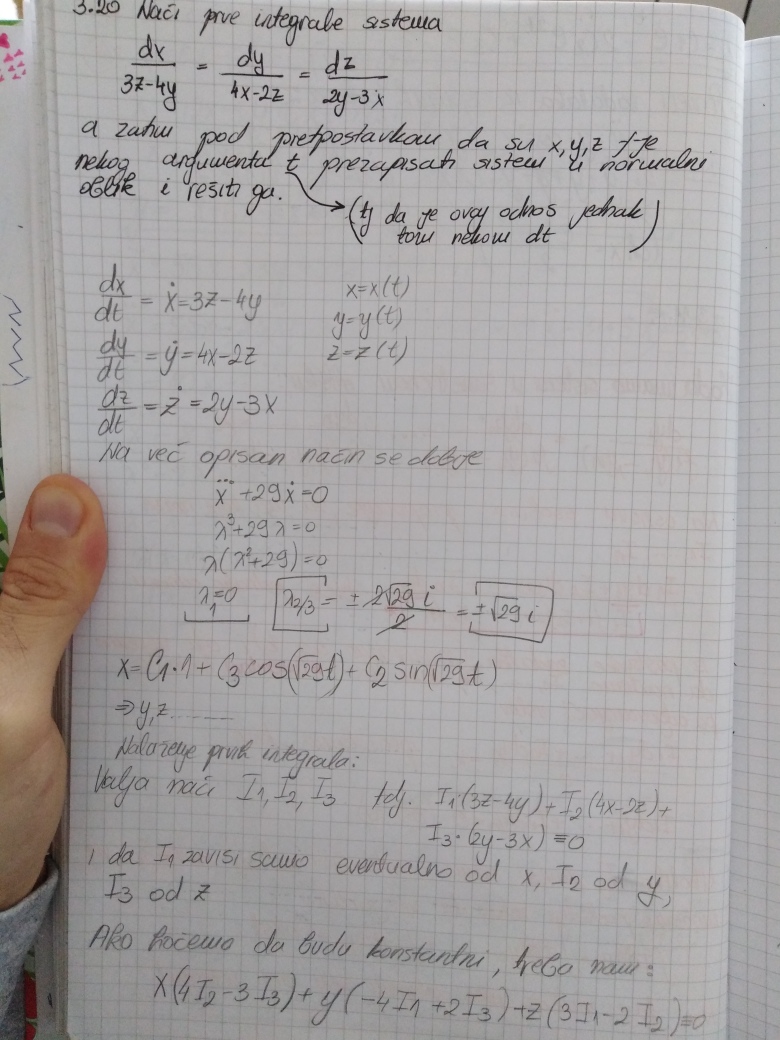 3.20 Naći prve integrale sistema
dx/(3z-4y) = dy/(4x-2z) = dz/(2y-3x)
a zatim pod pretpostavkom da su x,y,z f-je
nekog argumenta t prezapisati sistem u normalni
oblik i rešiti ga.
(tj da je ovaj odnos jednak
tom nekom dt)
dx/dt = ẋ = 3z-4y x=x(t)
y=y(t)
dy/dt = ẏ = 4x-2z z=z(t)
dz/dt = ż = 2y-3x
Na već opisan način se dobije
x⃛ + 29ẋ = 0
λ³+29λ=0
λ(λ²+29)=0
λ₁=0 λ₂/₃ = ± 2√29 i / 2 = ±√29 i
x = C₁·1 + C₃cos(√29t) + C₂ sin(√29t)
⇒ y,z.......
Nalaženje prvih integrala:
Valja naći I₁, I₂, I₃ tdj. I₁·(3z-4y)+I₂(4x-2z)+
I₃·(2y-3x) ≡0
i da I₁ zavisi samo eventualno od x, I₂ od y,
I₃ od z
Ako hoćemo da budu konstantni, treba nam:
x(4I₂-3I₃)+y(-4I₁+2I₃)+z(3I₁-2I₂)≡0